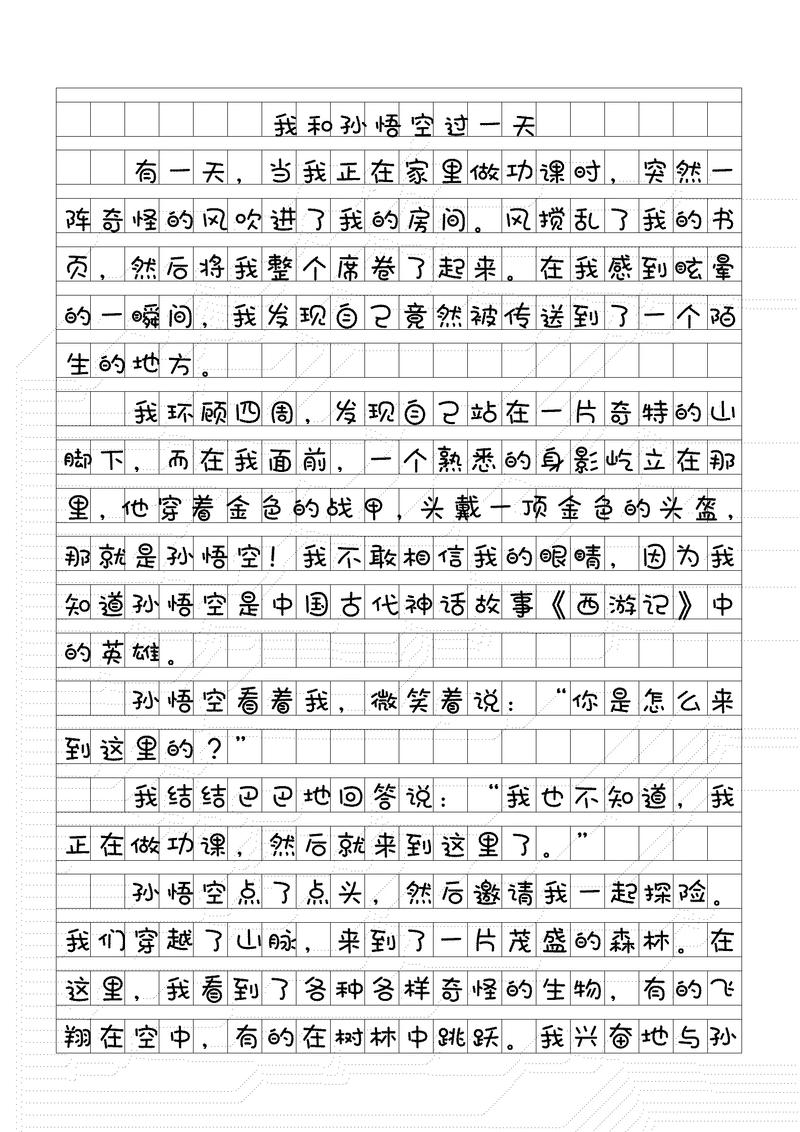 我和孙悟空过一天
有一天，当我正在家里做功课时，突然一
阵奇怪的风吹进了我的房间。风搅乱了我的书
页，然后将我整个席卷了起来。在我感到眩晕
的一瞬间，我发现自己竟然被传送到了一个陌
生的地方。
我环顾四周，发现自己站在一片奇特的山
脚下，而在我面前，一个熟悉的身影屹立在那
里，他穿着金色的战甲，头戴一顶金色的头盔，
那就是孙悟空！我不敢相信我的眼睛，因为我
知道孙悟空是中国古代神话故事《西游记》中
的英雄。
孙悟空看着我，微笑着说：“你是怎么来
到这里的？”
我结结巴巴地回答说：“我也不知道，我
正在做功课，然后就来到这里了。”
孙悟空点了点头，然后邀请我一起探险。
我们穿越了山脉，来到了一片茂盛的森林。在
这里，我看到了各种各样奇怪的生物，有的飞
翔在空中，有的在树林中跳跃。我兴奋地与孙